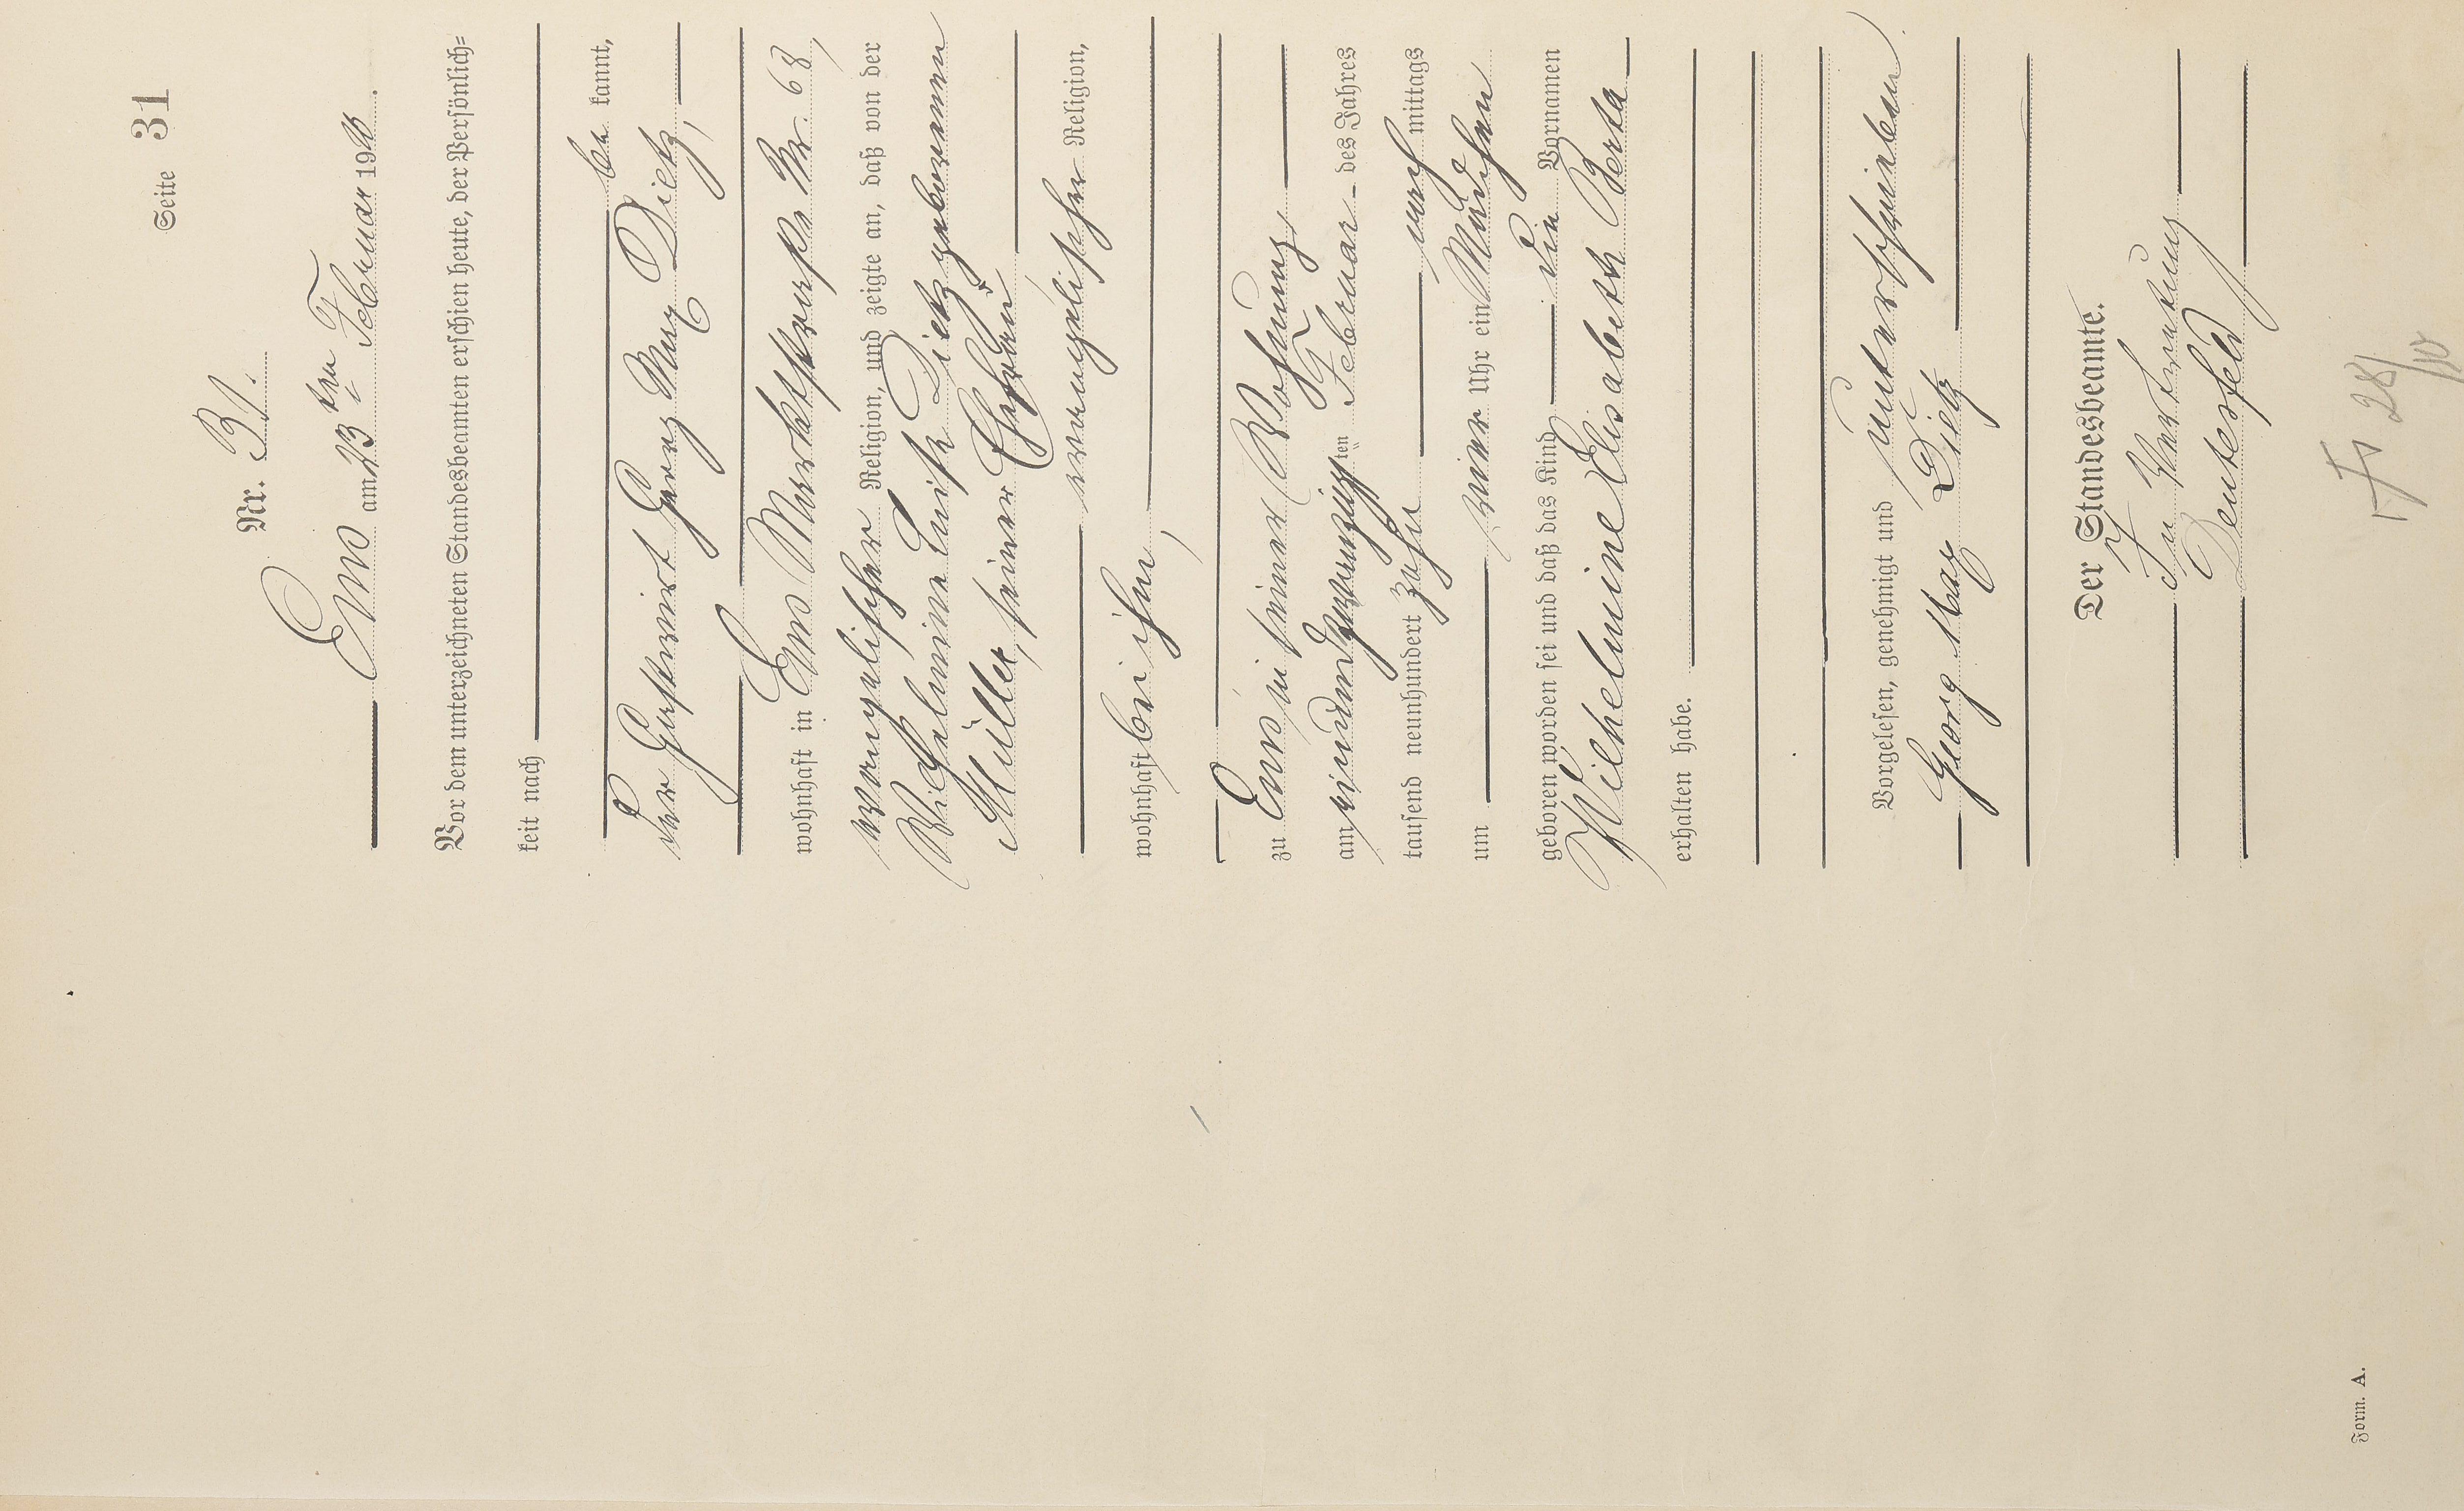 Seite 31
Nr. 31.
Ems am 23ten Februar 1910.
Vor dem unterzeichneten Standesbeamten erschien heute, der Persönlich=
keit nach
be kannt,
der Gastwirt Georg Max Dietz,
wohnhaft in Ems Marktstraße Nr. 68,
evangelischer Religion, und zeigte an, daß von der
Wilhelmine Luise Dietz geborenen
Müller, seiner Ehefrau,
evangelischer Religion,
wohnhaft bei ihm,
zu Ems in seiner Wohnung,
am einundzwanzigsten Februar des Jahres
tausend neunhundert zehn nach mittags
um einer Uhr ein Mädchen
geboren worden sei und daß das Kind die Vornamen
Wilhelmine Elisabeth Berta
erhalten habe.
Vorgelesen, genehmigt und unterschrieben
Georg Max Dietz
Der Standesbeamte.
In Vertretung
Deutesfeld
28/10
Form. A.